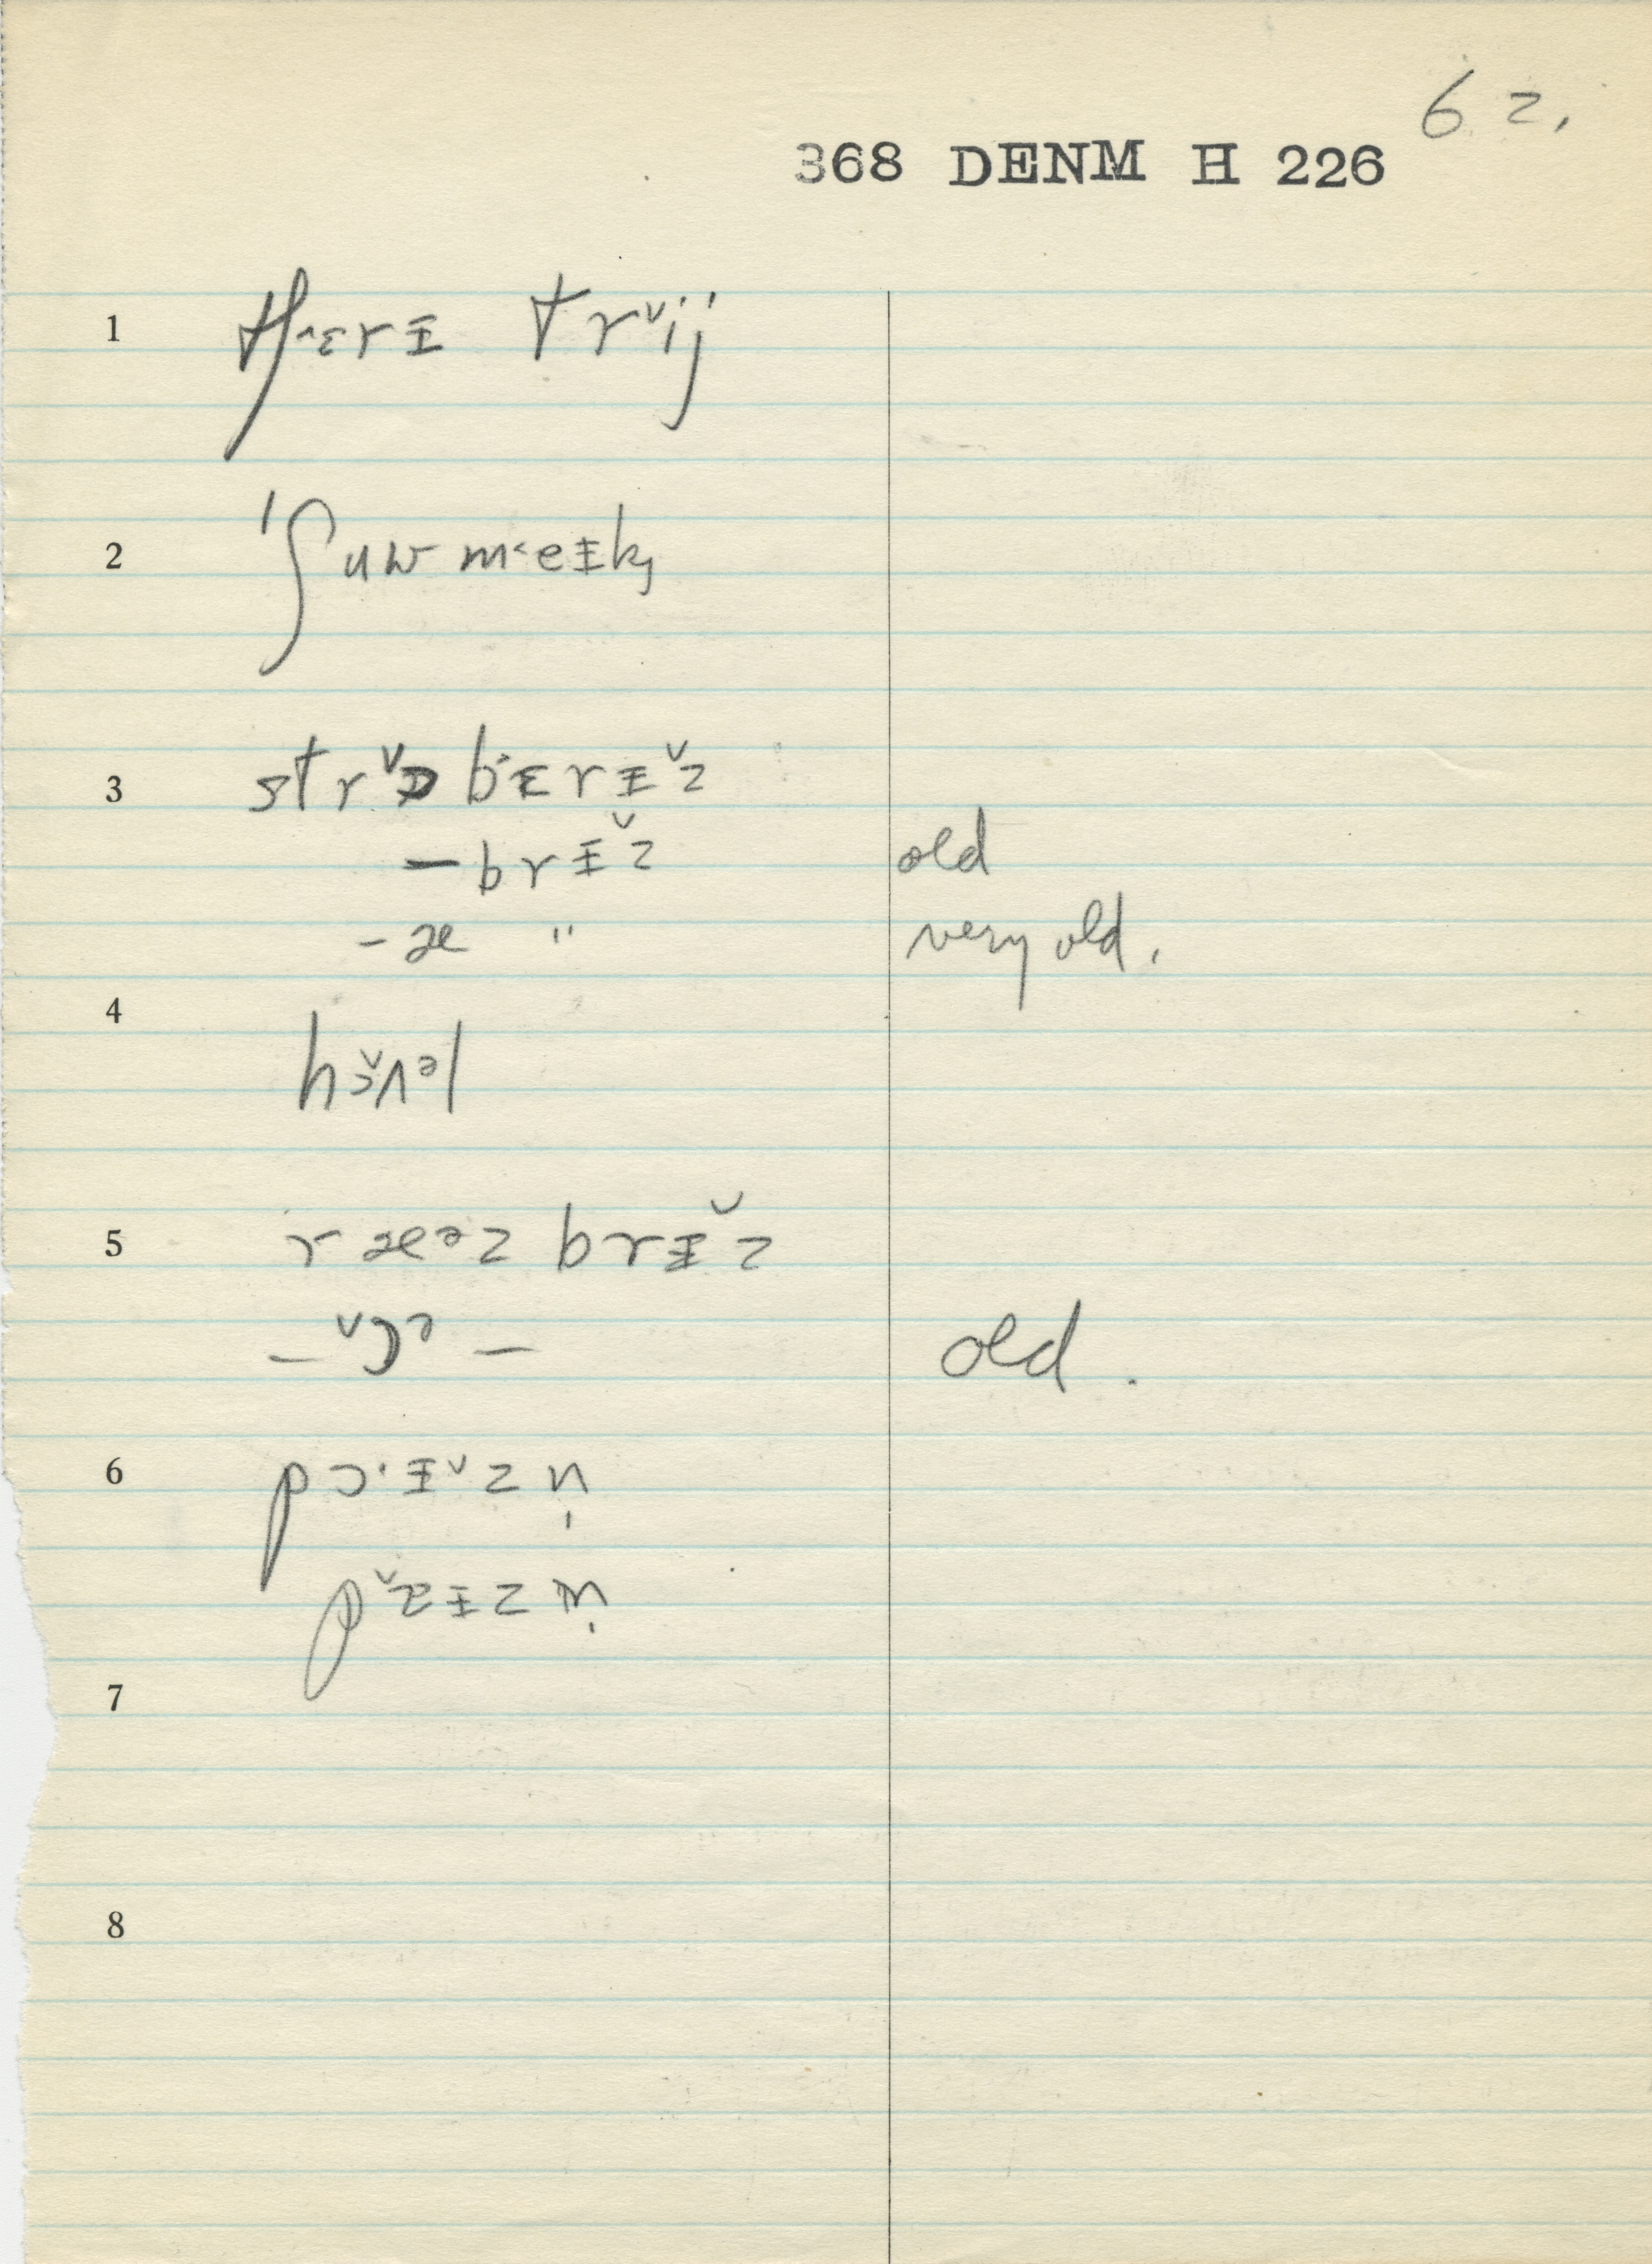 6 2.
368 DENM H 226
1 tʃ˂ɛrɪ trᵛij
2 ˈʃuw m˂eɪk
3 strᵛɒ bɛrɪᵛz
— brɪᵛz old
– æ " very old.
4 hɔᵛʌəl
5 ræᵊz brɪᵛz
— ᵛɔᵊ — old.
6 pɔ·ɪᵛzn̩
pᵛɐɪzn̩
7
8